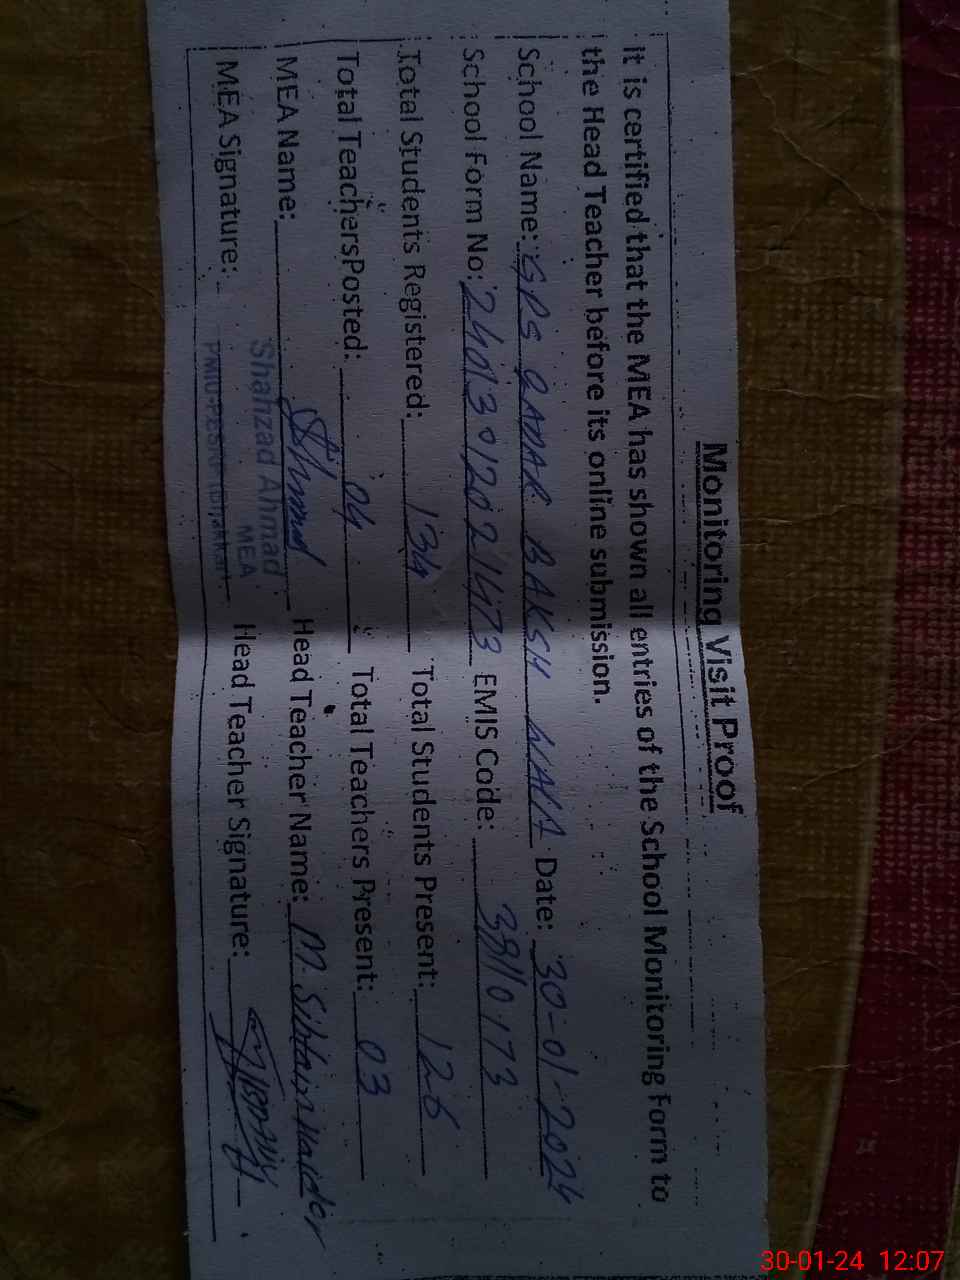 Monitoring Visit Proof
It is certified that the MEA has shown all entries of the School Monitoring Form to
the Head Teacher before its online submission.
School Name: GPS QADAR BAKSH WALA Date: 30-01-2024
School Form No: 2401301202 1473 EMIS Code: 38110173
Total Students Registered: 134 Total Students Present: 126
Total TeachersPosted: 04 Total Teachers Present: 03
MEA Name: Head Teacher Name: M. Sibtain Haider
MEA Signature: Head Teacher Signature:
Shahzad Ahmad
MEA
30-01-24 12:07